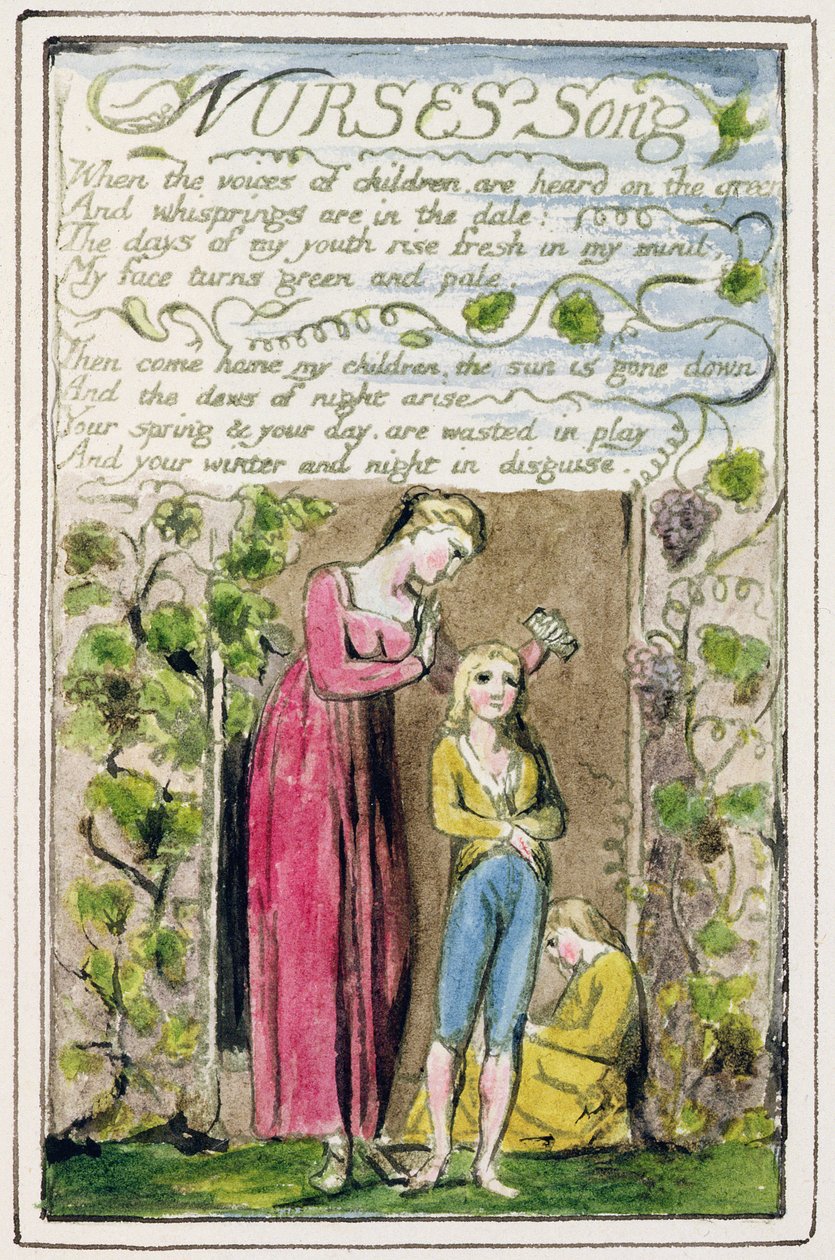 NURSES Song
When the voices of children. are heard on the green
And whisprings are in the dale:
The days of my youth rise fresh in my mind,
My face turns green and pale.
Then come home my children, the sun is gone down
And the dews of night arise
Your spring & your day. are wasted in play
And your winter and night in disguise.